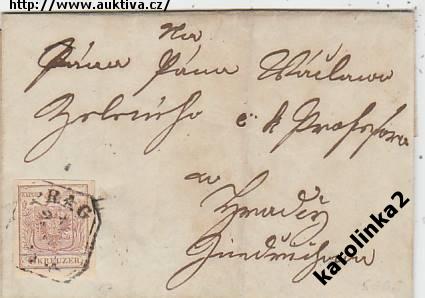 http://www.auktiva.cz/
Na
Pána Pána Václava
Zeleného c k Professora
w
Hradci
Jindřichova
PRAG
KREUZER
karolinka2